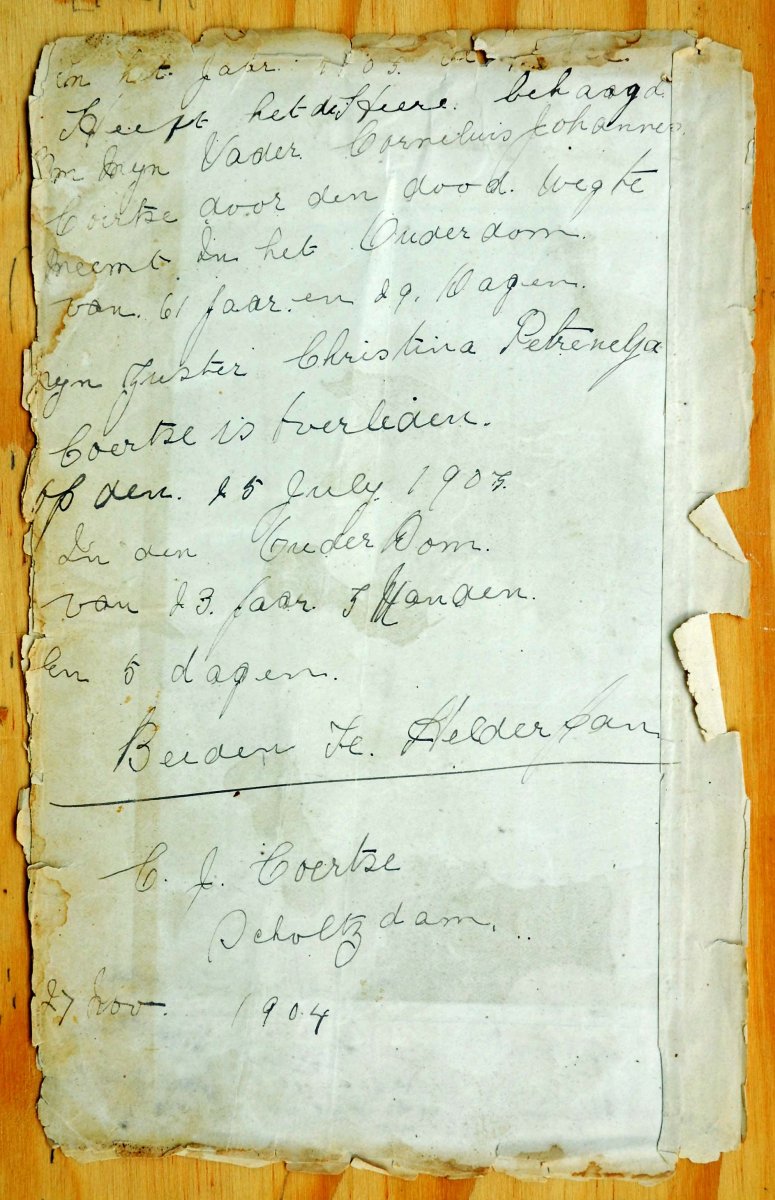 in het Jaar 1903.
Heeft het de Heere. behaagd
Om Myn Vader Cornelius Johannes
Coertse door den dood. weg te
neemt. In het Ouderdom.
van. 61 Jaar. en 29. Dagen.
myn Zuster Christina Petrenelja
Coertse is overleden.
op den. 25 July. 1903.
In den OuderDom.
van 23. Jaar. 3 Manden.
En 5 dagen.
Beiden te. Helderfan
C. J. Coertse
Scholtzdam. ..
27 Nov. 1904